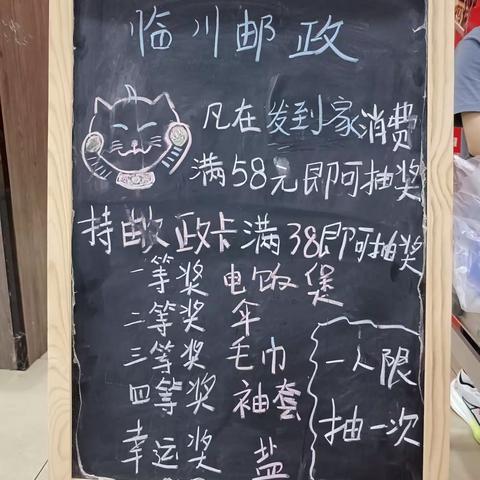 临川邮政
凡在发到家消费
满58元即可抽奖
持邮政卡满38即可抽奖
一等奖 电饭煲
二等奖 伞
三等奖 毛巾
四等奖 袖套
幸运奖 盐
一人限
抽一次